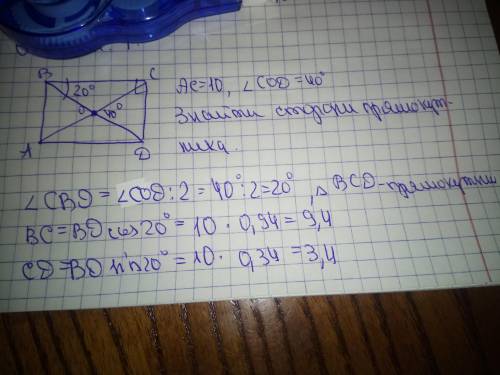 B C
20°
O 40°
A D
AC=10, ∠COD=40°
Знайти сторони прямокут-
ника.
∠CBD=∠COD:2=40°:2=20°, △BCD-прямокутний
BC=BD cos20°=10·0,94=9,4
CD=BD sin20°=10·0,34=3,4